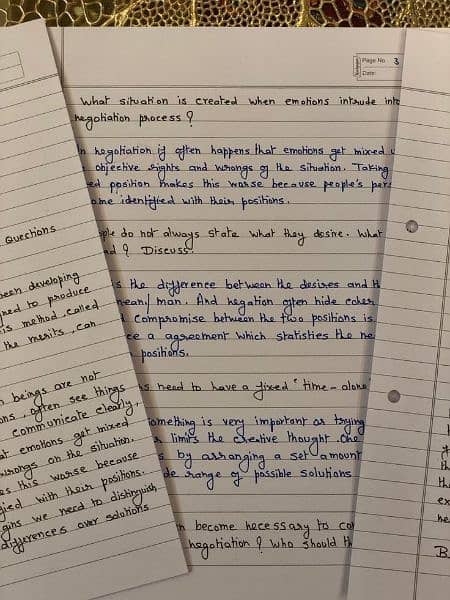 Page No 3
Date:
What situation is created when emotions intrude into
negotiation process ?
negotiation it often happens that emotions get mixed
objective rights and wrongs of the situation. Taking
position makes this worse because people's
identified with their positions.
do not always state what they desire. What
? Discuss.
the difference between the desires and
man. And negation often hide
compromise between the two positions is
a agreement which statisties the
positions.
need to have a fixed "time - alone
something is very important as trying
limits the creative thought. One
by arranging a set amount
range of possible solutions
become necessary to
negotiation ? Who should
Questions
been developing
to produce
method, called
the merits, can
beings are not
often see things
communicate clearly.
emotions get mixed
wrongs on the situation.
this worse because
with their positions.
we need to distinguish
differences over solutions